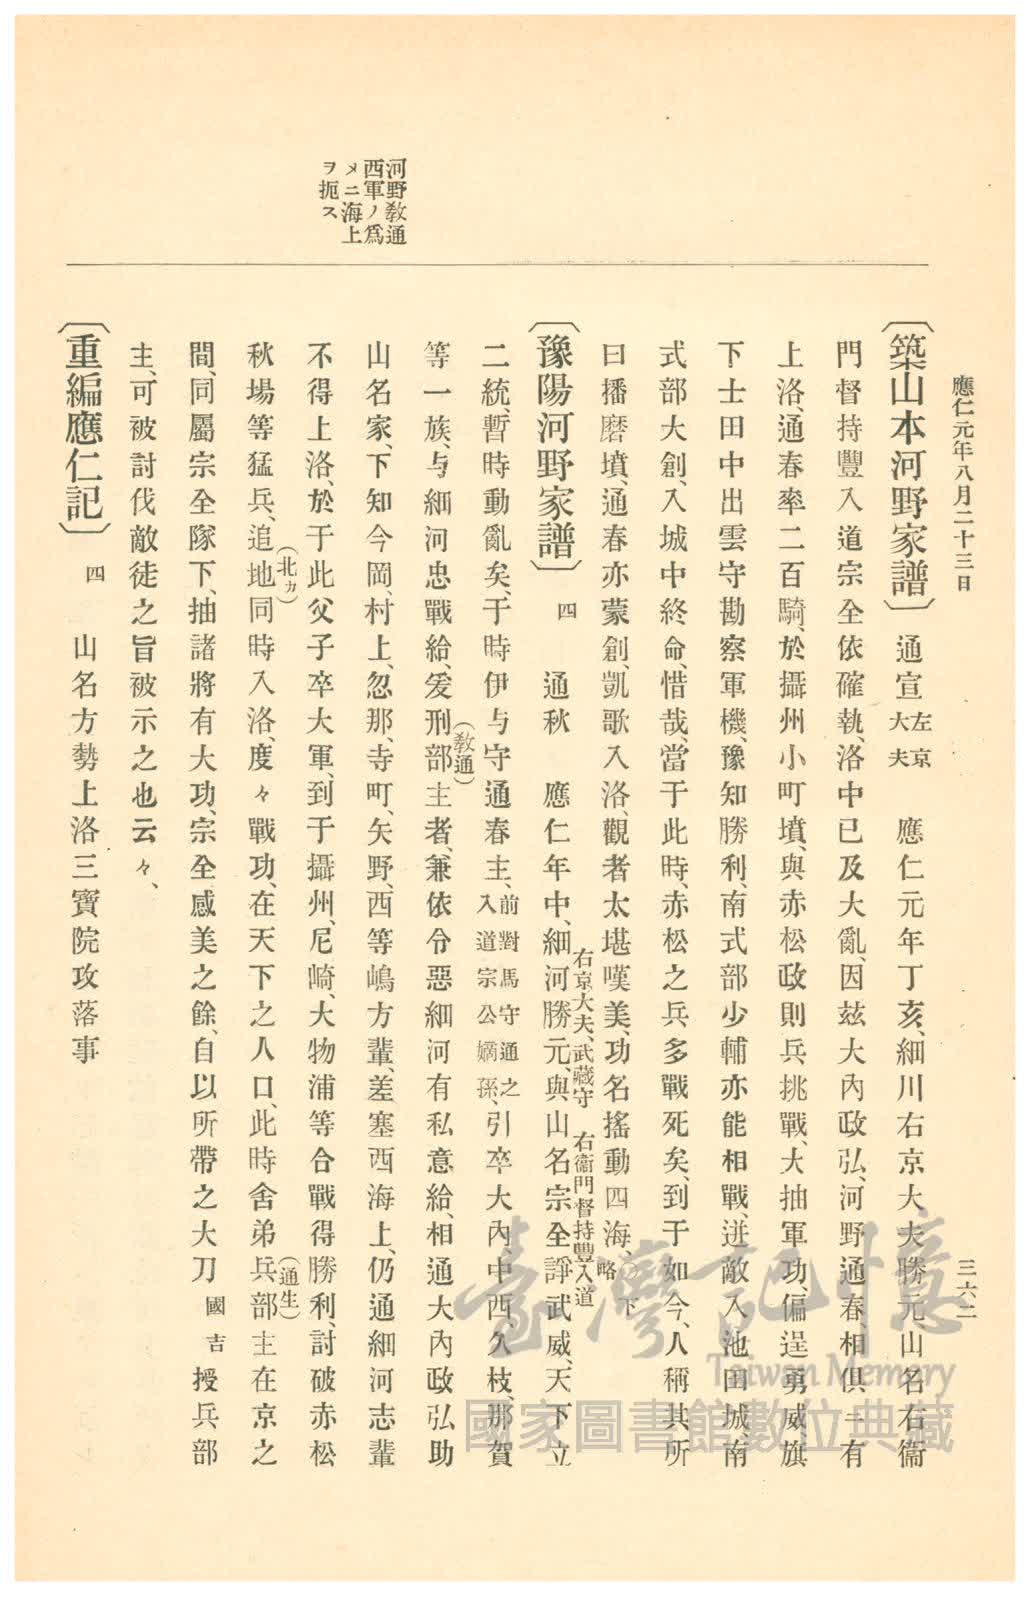 應仁元年八月二十三日
三六二
〔築山本河野家譜〕 通宣左京大夫 應仁元年丁亥、細川右京大夫勝元山名右衞
門督持豐入道宗全依確執、洛中已及大亂、因茲大內政弘、河野通春、相俱ニ有
上洛、通春率二百騎、於攝州小町墳、與赤松政則兵挑戰、大抽軍功、偏逞勇威旗
下士田中出雲守勘察軍機、豫知勝利、南式部少輔亦能相戰、迸敵入池田城、南
式部大創、入城中終命、惜哉、當于此時、赤松之兵多戰死矣、到于如今、人稱其所
曰播磨墳、通春亦蒙創、凱歌入洛、觀者太堪嘆美、功名搖動四海、○下略
〔豫陽河野家譜〕 四 通秋 應仁年中、細河勝元、與山名宗全諍武威、天下立
右京大夫、武藏守 右衞門督持豐入道
二統、暫時動亂矣、于時伊与守通春主、前對馬守通之入道宗公嫡孫、引卒大內、中西、久枝、那賀
等一族、与細河忠戰給、爰刑部主者、兼依令惡細河有私意給、相通大內政弘助
(敎通)
山名家、下知今岡、村上、忽那、寺町、矢野、西等嶋方輩、差塞西海上、仍通細河志輩
不得上洛、於于此父子卒大軍、到于攝州、尼崎、大物浦等合戰得勝利、討破赤松
秋場等猛兵、追地同時入洛、度々戰功、在天下之人口、此時舍弟兵部主在京之
(北カ)
(通生)
間、同屬宗全隊下、抽諸將有大功、宗全感美之餘、自以所帶之大刀國吉授兵部
主、可被討伐敵徒之旨被示之也云々、
〔重編應仁記〕 四 山名方勢上洛三寶院攻落事
河野敎通
西軍ノ爲
メニ海上
ヲ扼ス
臺灣記憶
Taiwan Memory
國家圖書館數位典藏